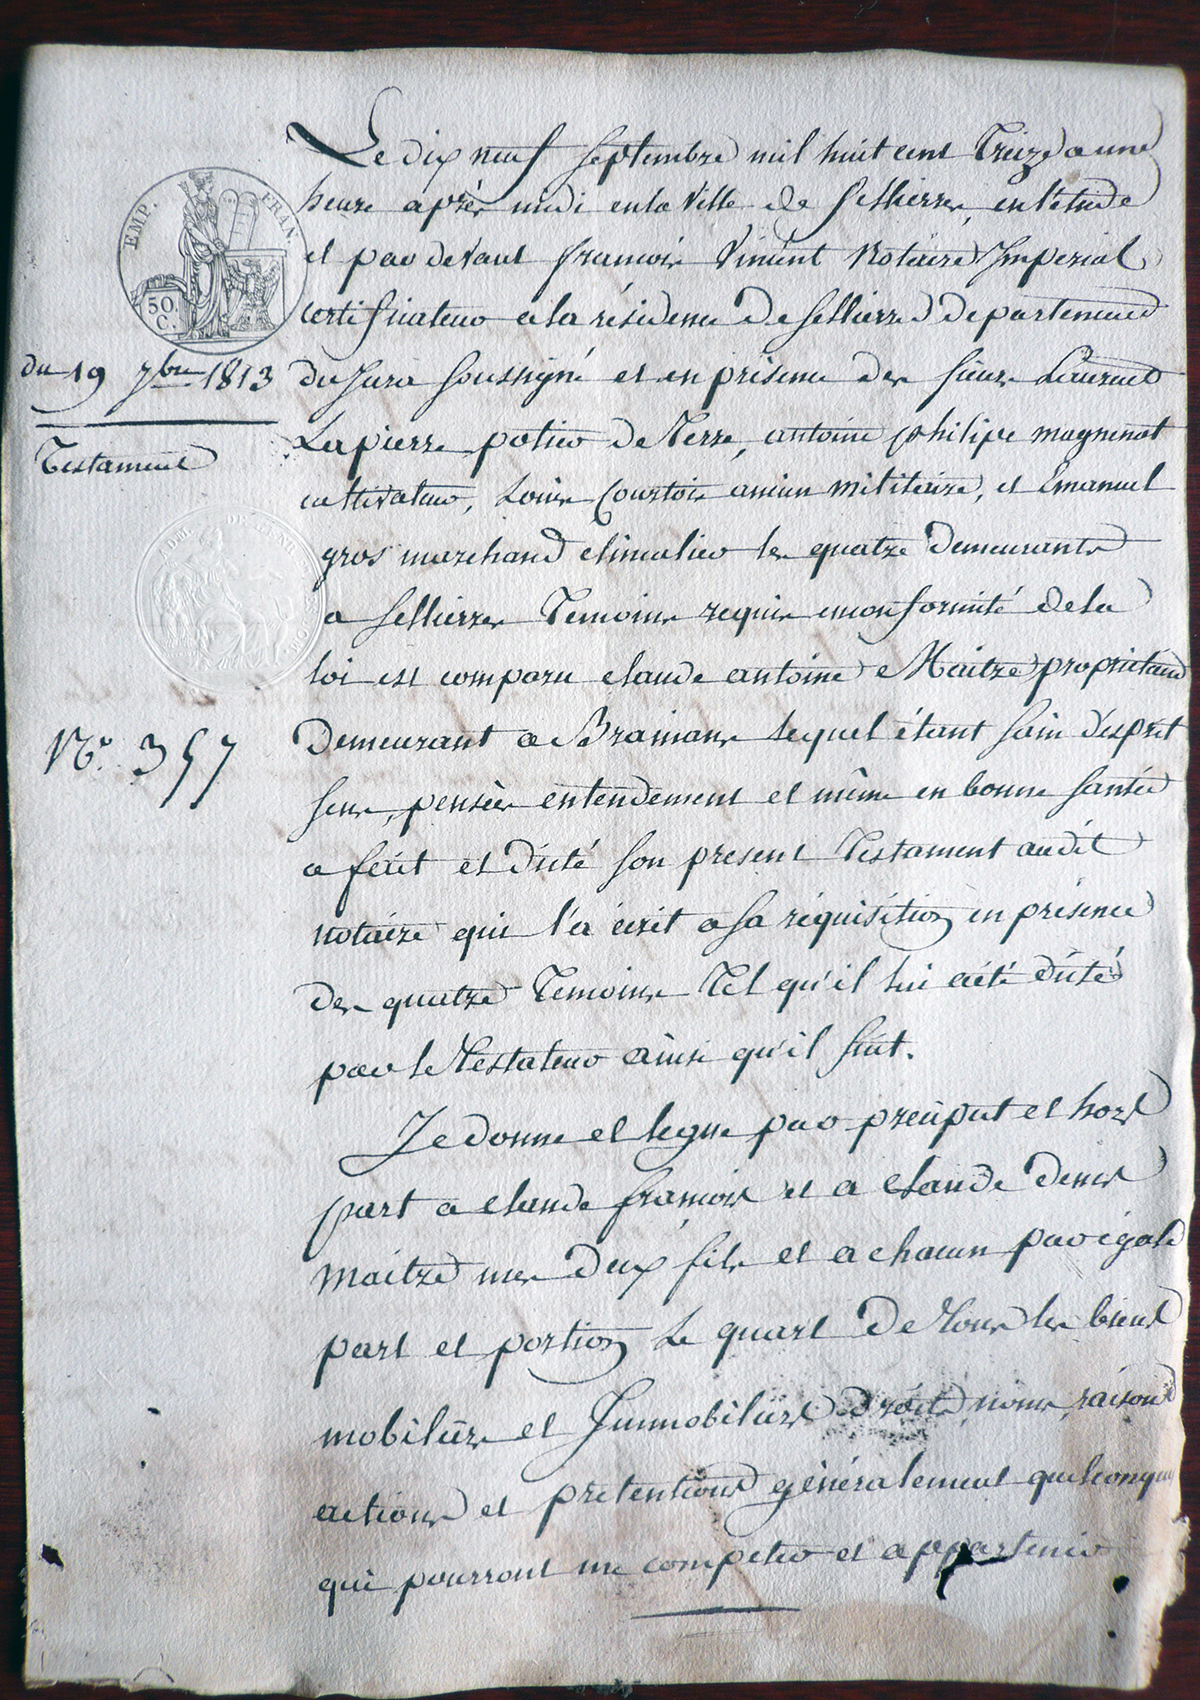 EMP. FRAN.
50 C.
du 19 7bre 1813
Testament
ADM. DE L'ENR
N° 357
Le dix neuf septembre mil huit cent Treize a une
heure après midi en la Ville de Sellierre, en l'etude
et par devant francois Vincent Notaire Imperial
certificateur a la résidence de Sellierre departement
du Jura soussigné et en présence des sieurs Laurent
Lapierre potier de Terre, antoine philippe magnenot
cultivateur, Louis Courtois ancien militaire, et Emanuel
gros marchand les quatre demeurants
a Sellierre Temoins requis en conformité de la
loi est comparu claude antoine Maitre propriétaire
demeurant a Brainans lequel étant sain d'esprit
sens, pensée entendement et même en bonne santée
a fait et dicté son present Testament audit
notaire qui l'a écrit a sa réquisition en présence
des quatre Temoins Tel qu'il lui a été dicté
par le Testateur ainsi qu'il suit.
Je donne et legue par préciput et hors
part a claude francois et a claude denis
Maitre mes deux fils et a chacun par égale
part et portion Le quart de Tous les biens
mobiliers et Immobiliers droits, noms, raisons
actions et pretentions généralement quelconques
qui pourront me competer et appartenir